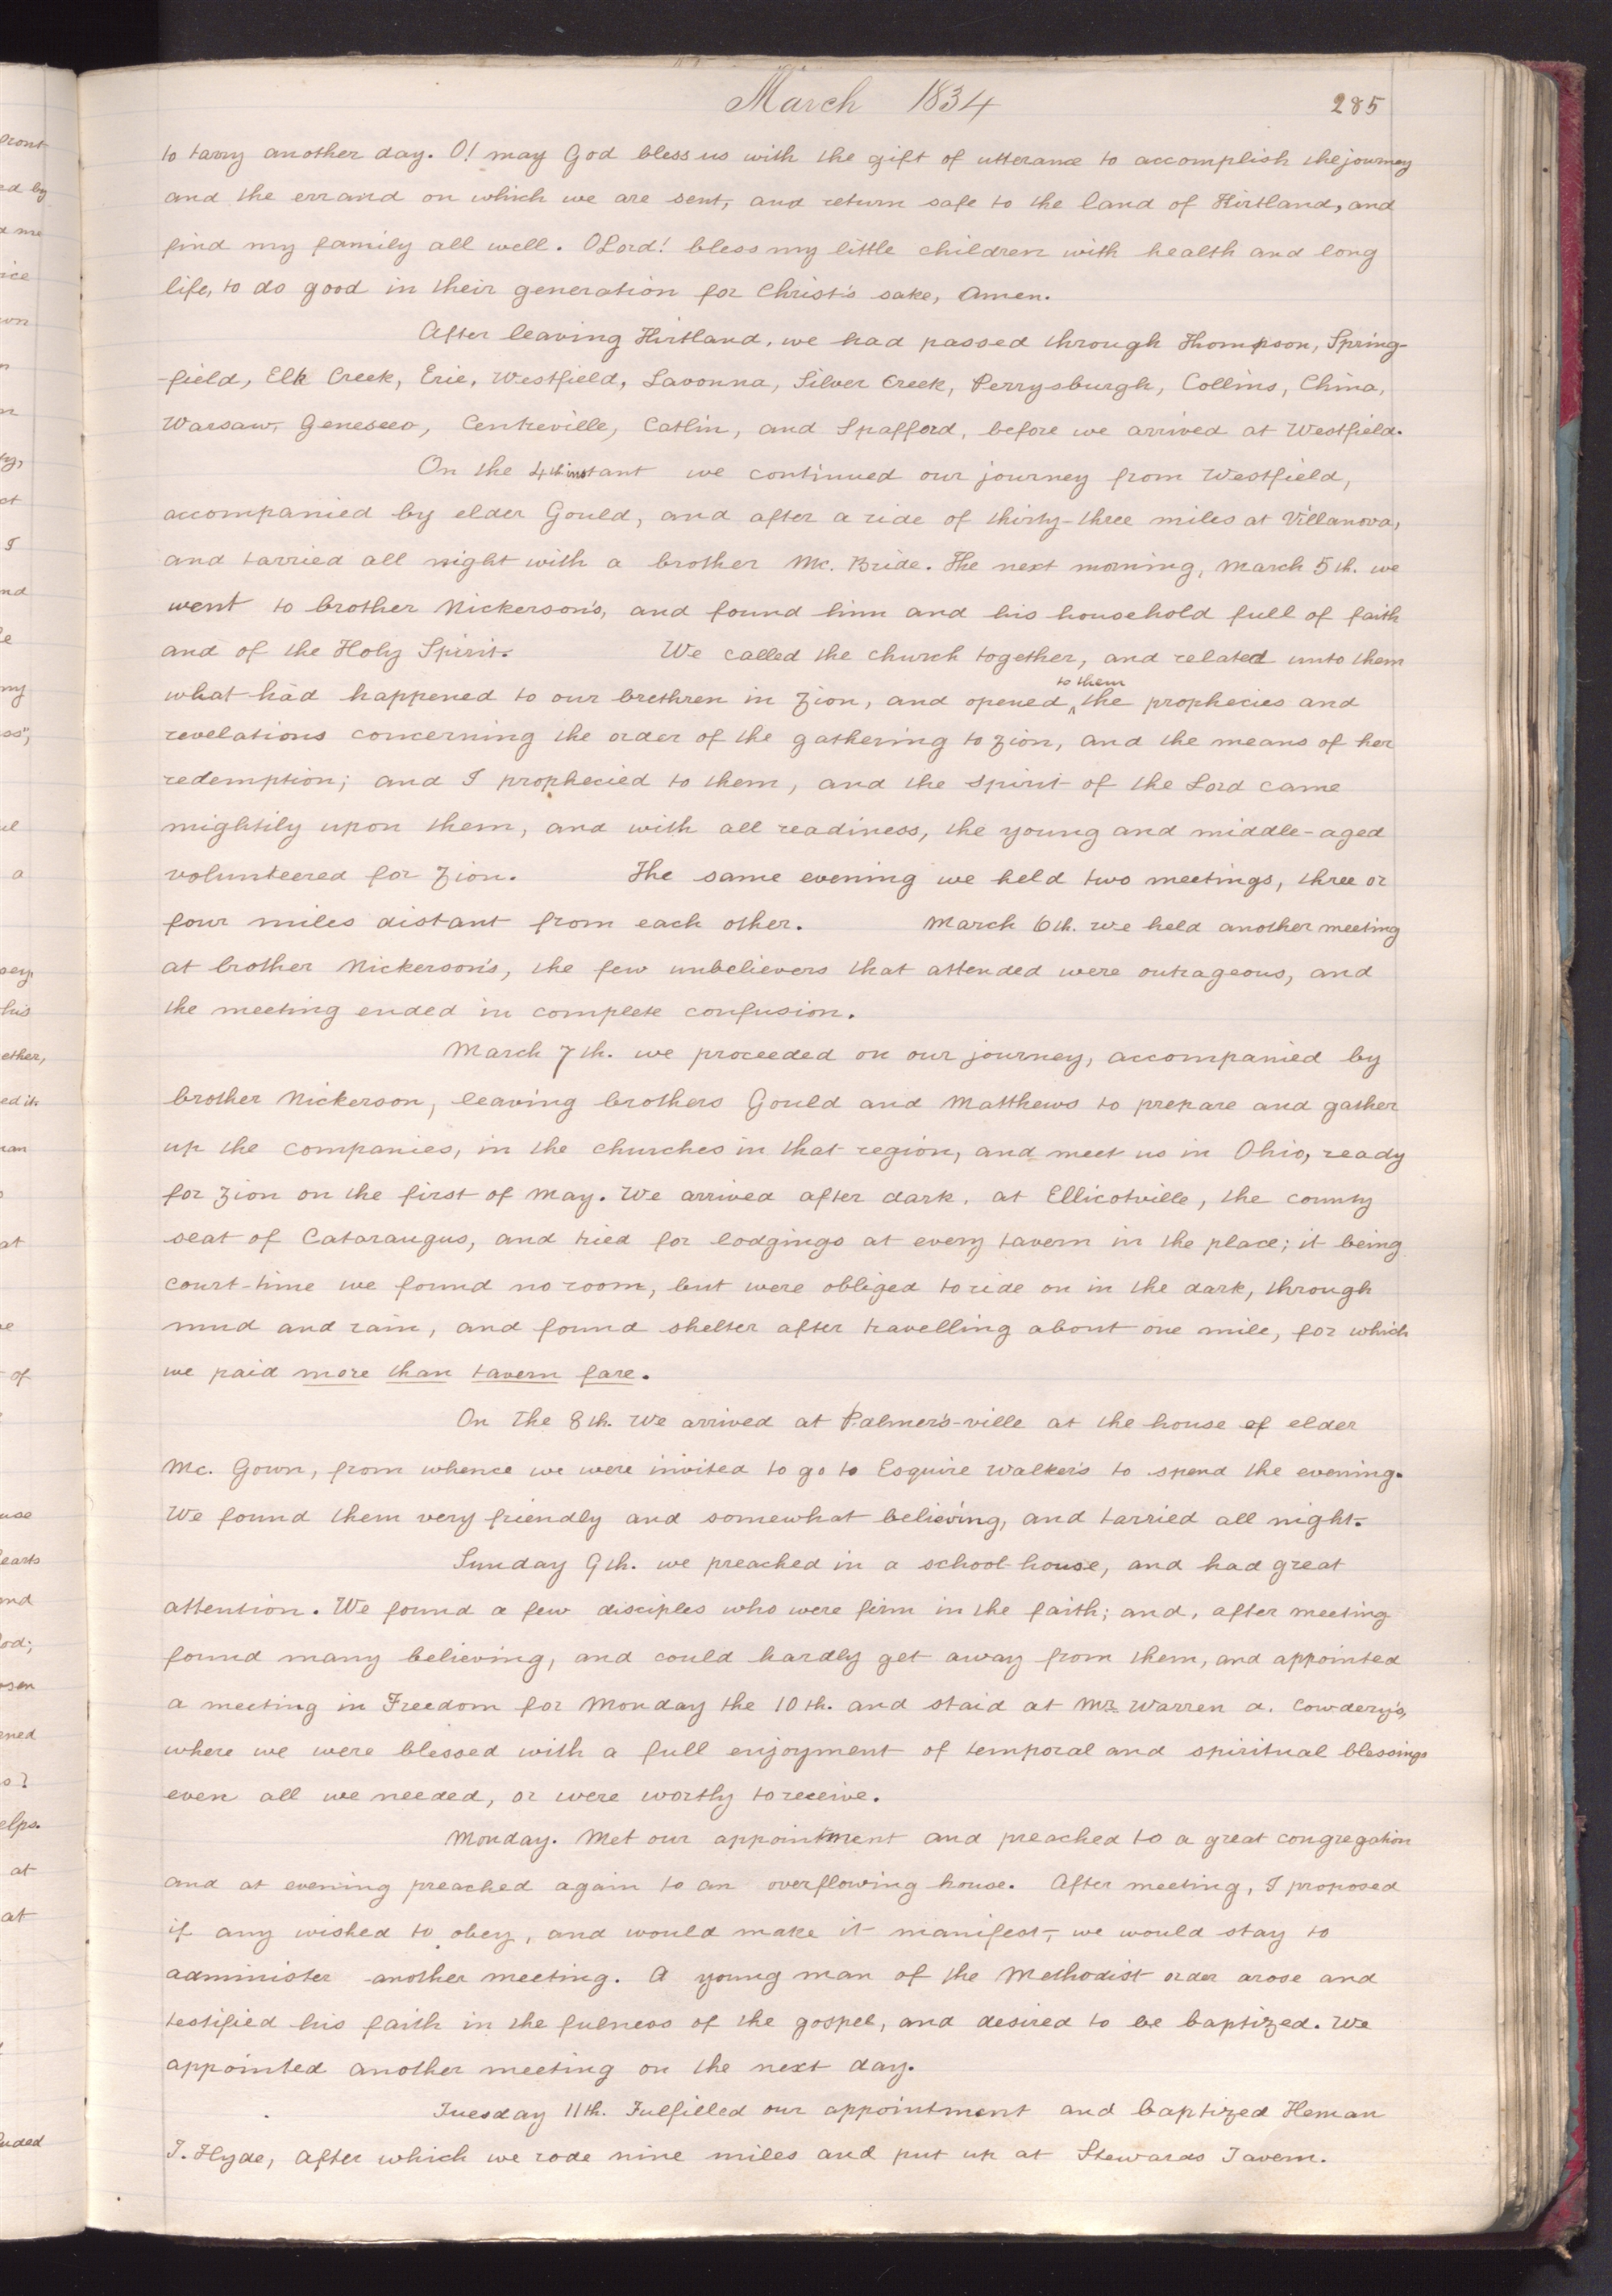 March 1834 285
to tarry another day. O! may God bless us with the gift of utterance to accomplish the journey
and the errand on which we are sent, and return safe to the land of Kirtland, and
find my family all well. O Lord! bless my little children with health and long
life, to do good in their generation for Christ's sake, Amen.
After leaving Kirtland, we had passed through Thompson, Spring-
-field, Elk Creek, Erie, Westfield, Lavonna, Silver Creek, Perrysburgh, Collins, China,
Warsaw, Geneseeo, Centreville, Catlin, and Spafford, before we arrived at Westfield.
On the 4th instant we continued our journey from Westfield,
accompanied by elder Gould, and after a ride of thirty-three miles at Villanova,
and tarried all night with a brother Mc. Bride. The next morning, March 5th. we
went to brother Nickerson's, and found him and his household full of faith
and of the Holy Spirit. We called the church together, and related unto them
what had happened to our brethren in Zion, and opened ^to them the prophecies and
revelations concerning the order of the gathering to Zion, and the means of her
redemption; and I prophecied to them, and the spirit of the Lord came
mightily upon them, and with all readiness, the young and middle-aged
volunteered for Zion. The same evening we held two meetings, three or
four miles distant from each other. March 6th. We held another meeting
at brother Nickerson's, the few unbelievers that attended were outrageous, and
the meeting ended in complete confusion.
March 7th. we proceeded on our journey, accompanied by
brother Nickerson, leaving brothers Gould and Matthews to prepare and gather
up the companies, in the churches in that region, and meet us in Ohio, ready
for Zion on the first of May. We arrived after dark, at Ellicotville, the county
seat of Cataraugus, and tried for lodgings at every tavern in the place; it being
court-time we found no room, but were obliged to ride on in the dark, through
mud and rain, and found shelter after travelling about one mile, for which
we paid more than tavern fare.
On The 8th. We arrived at Palmer's-ville at the house of elder
Mc. Gown, from whence we were invited to go to Esquire Walker's to spend the evening.
We found them very friendly and somewhat believing, and tarried all night.
Sunday 9th. we preached in a school-house, and had great
attention. We found a few disciples who were firm in the faith; and, after meeting
found many believing, and could hardly get away from them, and appointed
a meeting in Freedom for Monday the 10th. and staid at Mr. Warren A. Cowdery's,
where we were blessed with a full enjoyment of temporal and spiritual blessings
even all we needed, or were worthy to receive.
Monday. Met our appointment and preached to a great congregation
and at evening preached again to an overflowing house. After meeting, I proposed
if any wished to obey, and would make it manifest, we would stay to
administer another meeting. A young man of the Methodist order arose and
testified his faith in the fulness of the gospel, and desired to be baptized. We
appointed another meeting on the next day.
Tuesday 11th. Fulfilled our appointment and baptized Heman
T. Hyde, after which we rode nine miles and put up at Stewards Tavern.